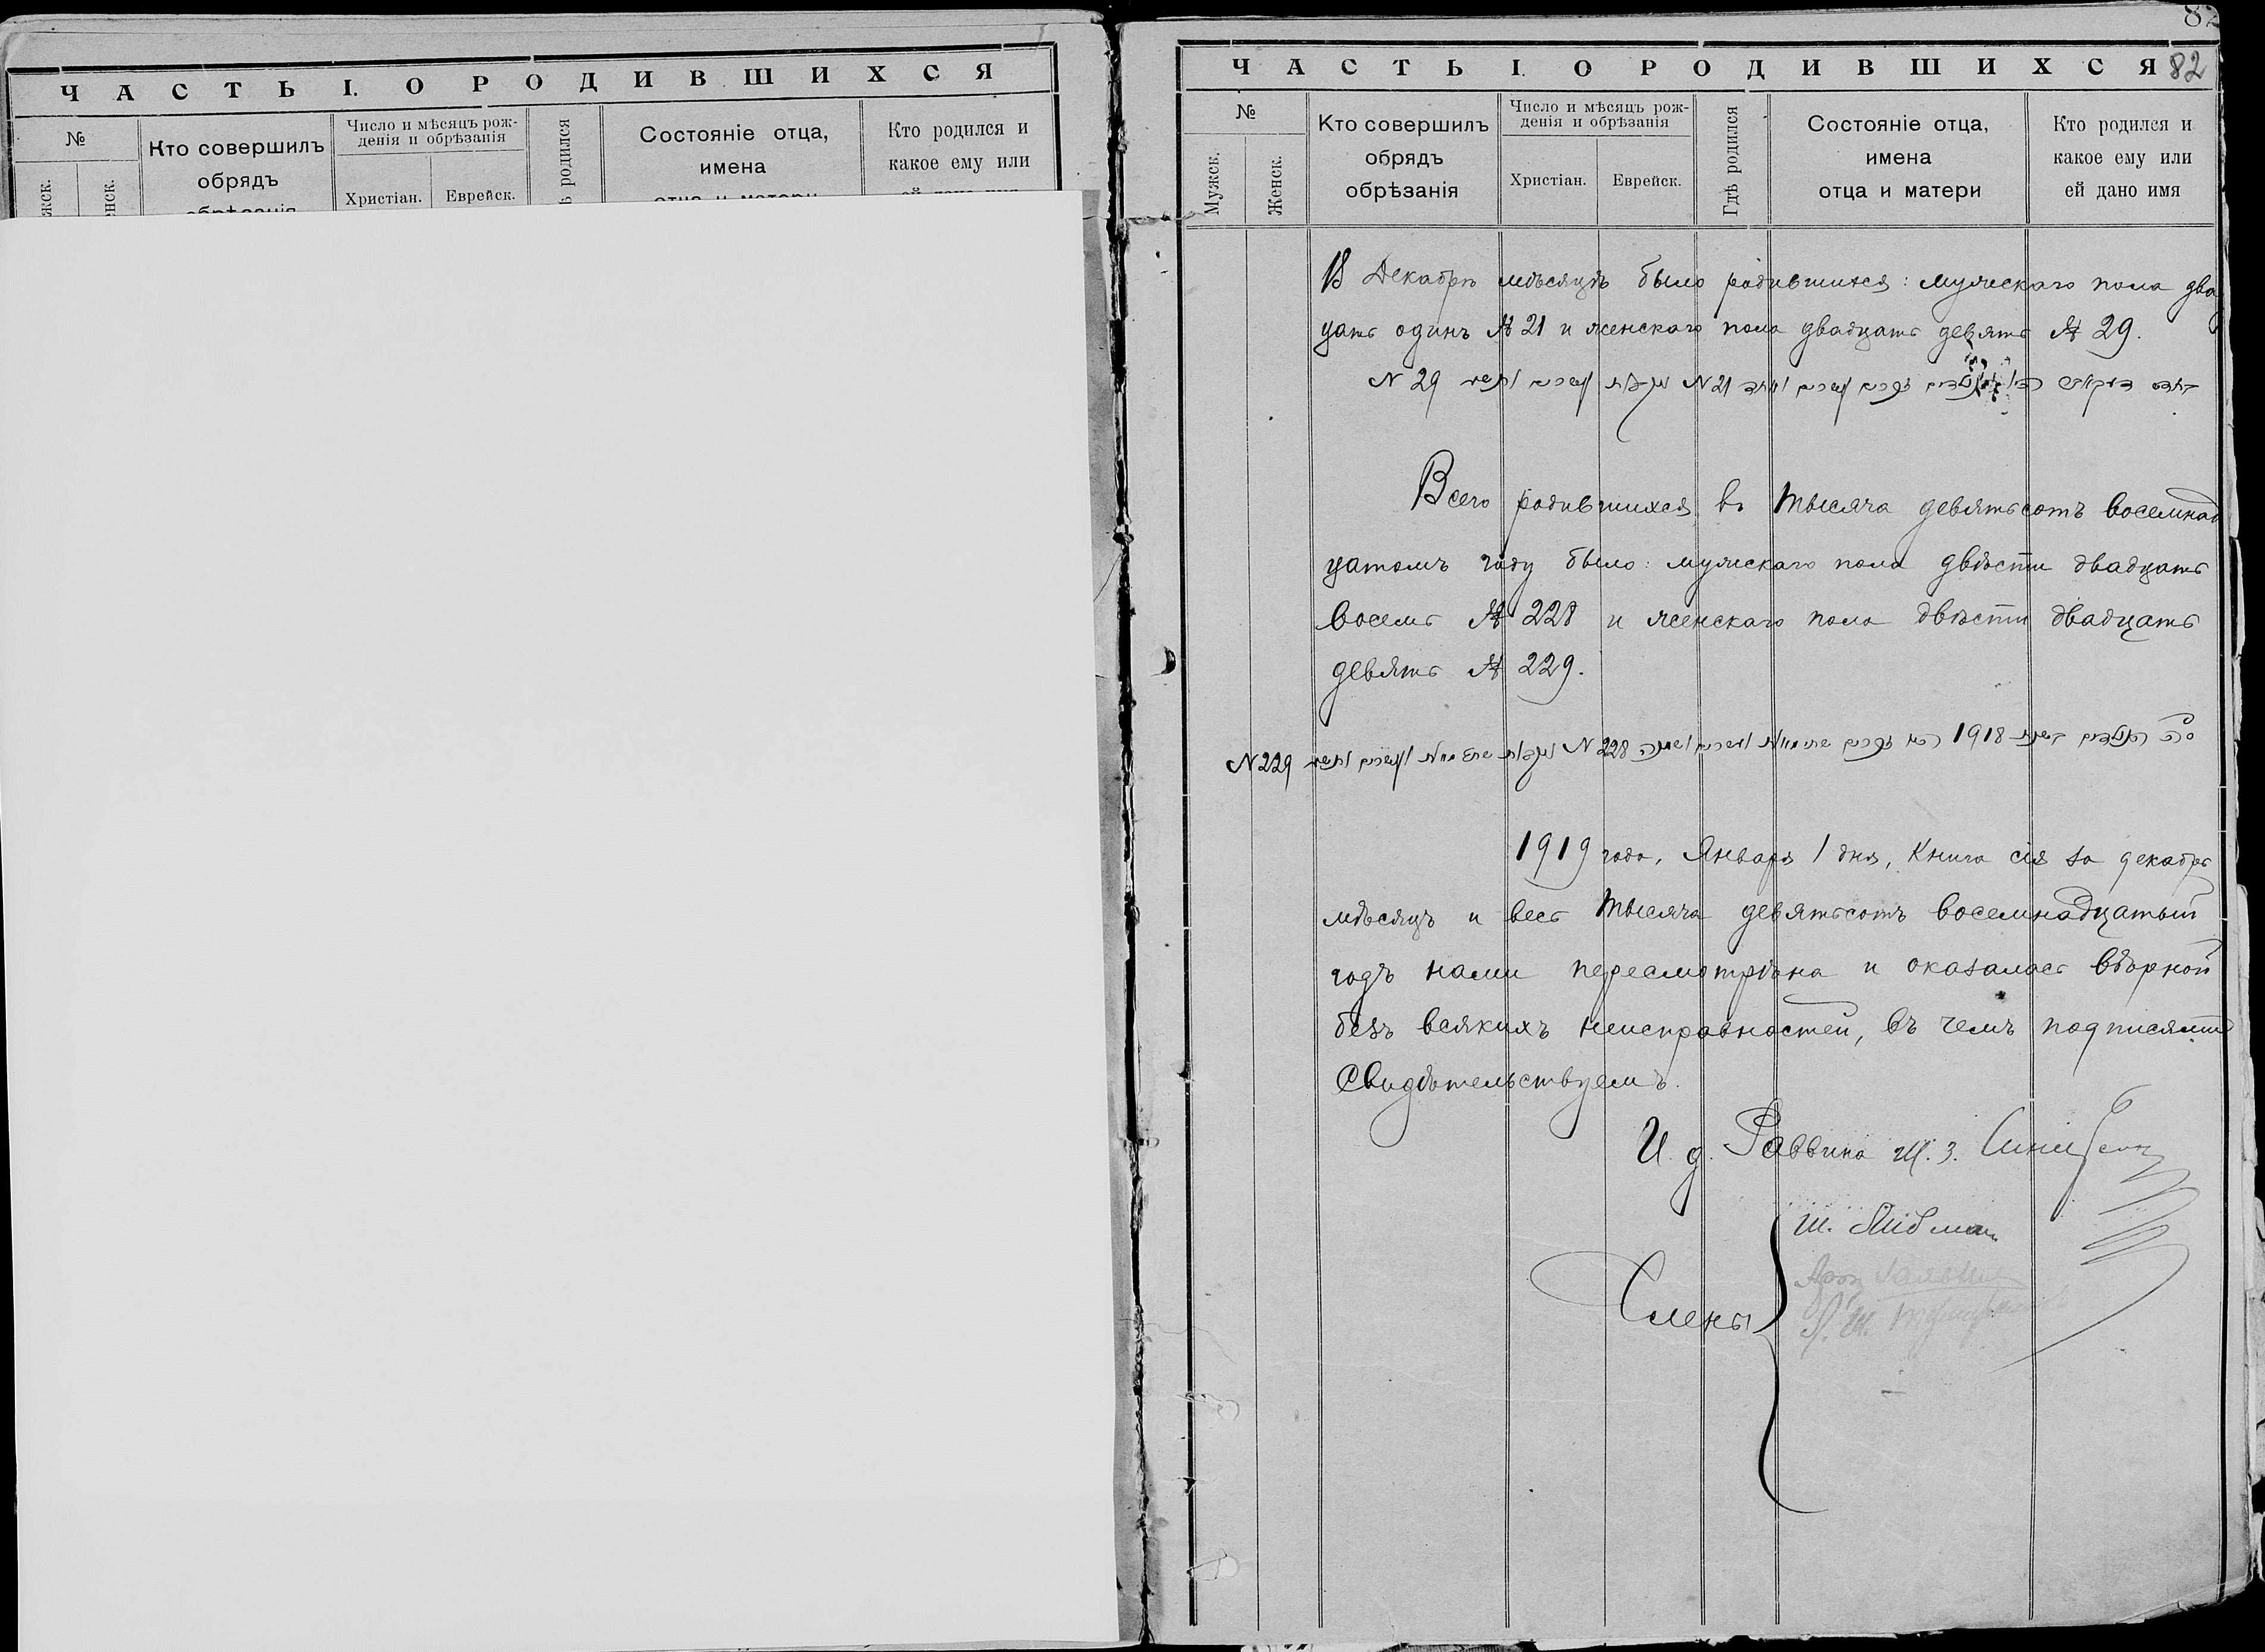 ЧАСТЬ I. О РОДИВШИХСЯ
№
нск.
Кто совершилъ
обрядъ
обрѣзанія
Число и мѣсяцъ рож-
денія и обрѣзанія
Христіан.
Еврейск.
родился
Состояніе отца,
имена
отца и матери
Кто родился и
какое ему или
82
ЧАСТЬ I. О РОДИВШИХСЯ 82
№
Мужск.
Женск.
Кто совершилъ
обрядъ
обрѣзанія
Число и мѣсяцъ рож-
денія и обрѣзанія
Христіан.
Еврейск.
Гдѣ родился
Состояніе отца,
имена
отца и матери
Кто родился и
какое ему или
ей дано имя
В Декабрѣ мѣсяцѣ было родившихся: мужскаго пола двад
цать одинъ № 21 и женскаго пола двадцать девять № 29.
זכרים עשרים ואחד N 21 נקבות עשרים ותשע N 29
Всего родившихся въ тысяча девятьсотъ восемнад
цатомъ году было: мужскаго пола двѣсти двадцать
восемь № 228 и женскаго пола двѣсти двадцать
девять № 229.
1918 זכרים מאתים ועשרים ושמנה N 228 נקבות מאתים ועשרים ותשע N 229
1919 года, Января 1 дня, Книга сія за декабрь
мѣсяцъ и весь тысяча девятьсотъ восемнадцатый
годъ нами пересмотрѣна и оказалась вѣрной
безъ всякихъ неисправностей, въ чемъ подписями
Свидѣтельствуемъ.
И. д. Раввина Ш. З.
Ш. Либман
Члены